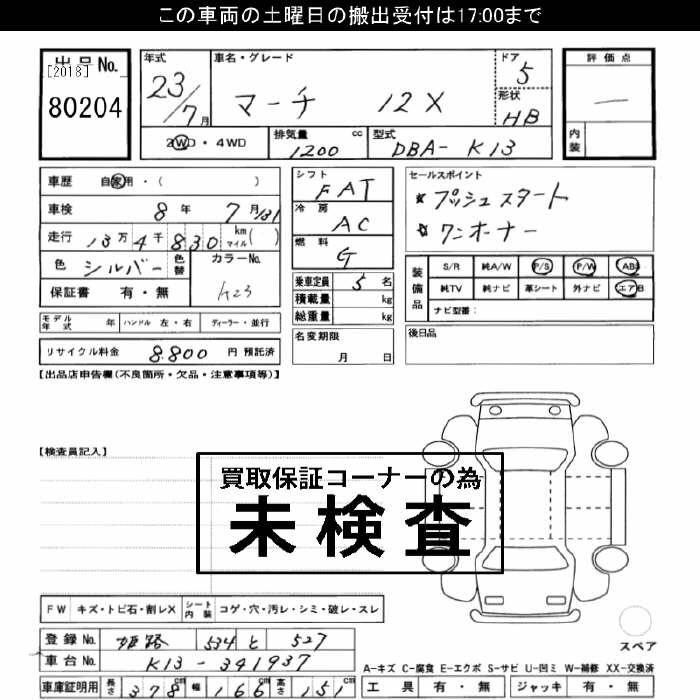 この車両の土曜日の搬出受付は17:00まで
出品No.
[2018]
80204
年式
23/7月
車名・グレード
マーチ 12X
ドア
5
形状
HB
評価点
―
内装
2WD・4WD
排気量 cc
1200
型式
DBA- K13
車歴 自家用・( )
車検 8年 7月/31
走行 13万4千830 km マイル( )
色 シルバー 色替
カラーNo.
K23
保証書 有・無
シフト
FAT
冷房
AC
燃料
G
乗車定員 5名
積載量 kg
総重量 kg
名変期限
月 日
セールスポイント
* プッシュスタート
☆ ワンオーナー
装備品
S/R 純A/W P/S P/W ABS
純TV 純ナビ 革シート 外ナビ エアB
ナビ型番:
後日品
モデル年式 年 ハンドル 左・右 ディーラー・並行
リサイクル料金 8.800 円 預託済
【出品店申告欄(不良箇所・欠品・注意事項等)】
【検査員記入】
買取保証コーナーの為
未検査
FW キズ・トビ石・割レX シート内装 コゲ・穴・汚レ・シミ・破レ・スレ
登録No. 姫路 534 と 527
車台No. K13-341937
車庫証明用 長さ 378cm 幅 166cm 高さ 151cm
スペア
A-キズ C-腐食 E-エクボ S-サビ U-凹ミ W-補修 XX-交換済
工具 有・無 ジャッキ 有・無